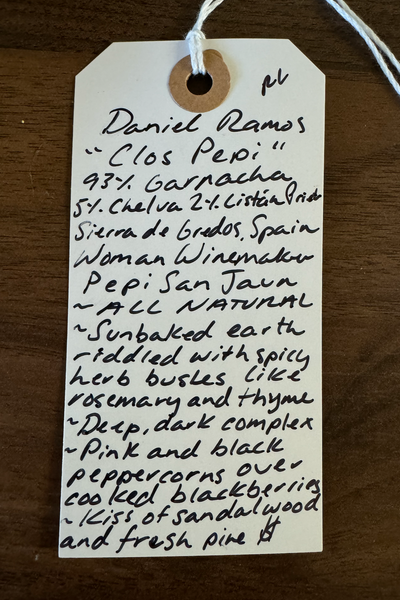 Daniel Ramos
"Clos Pepi"
93%. Garnacha
5%. Chelva 2%. Listán Prieto
Sierra de Gredos, Spain
Woman Winemaker
Pepi San Jaun
~ ALL NATURAL
~Sunbaked earth
riddled with spicy
herb bushes like
rosemary and thyme
~Deep, dark complex
~Pink and black
peppercorns over
cooked blackberries
~Kiss of sandalwood
and fresh pine